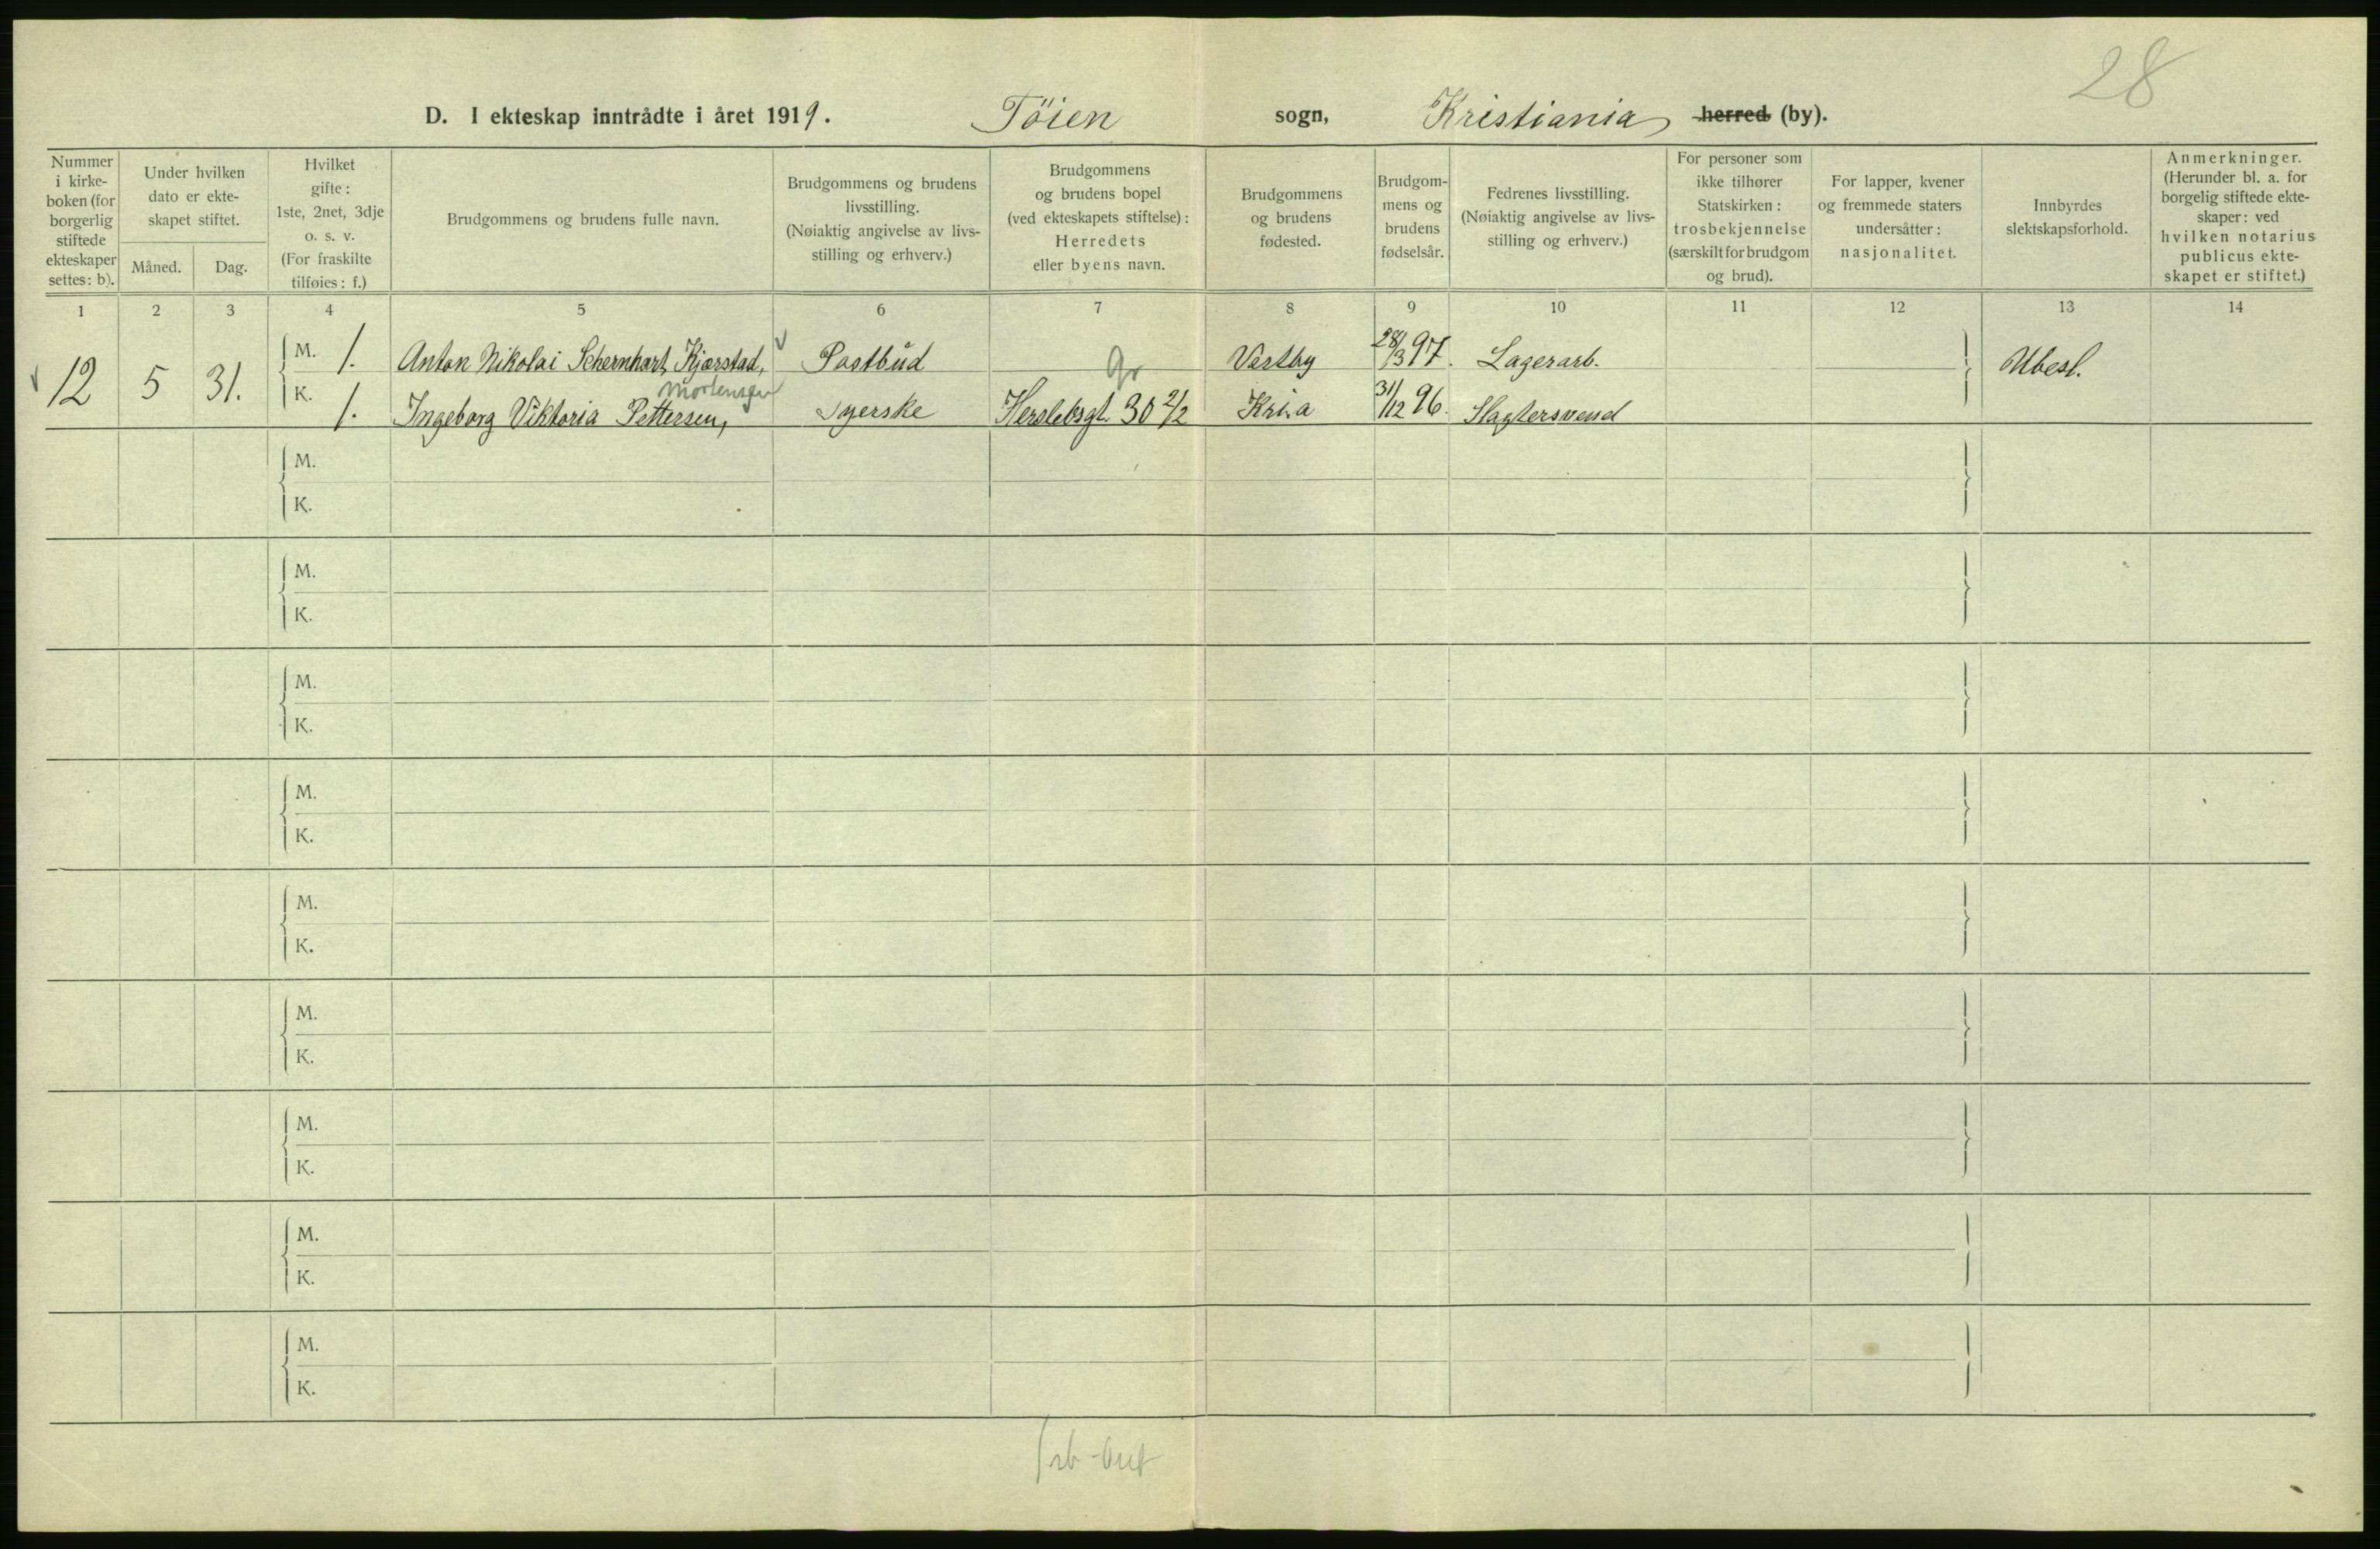 28
D. I ekteskap inntrådte i året 1919. Töien sogn, Kristiania herred (by).
Nummer
i kirke-
boken (for
borgerlig
stiftede
ekteskaper
settes: b).
Under hvilken
dato er ekte-
skapet stiftet.
Måned. Dag.
Hvilket
gifte:
1ste, 2net, 3dje
o. s. v.
(For fraskilte
tilføies: f.)
Brudgommens og brudens fulle navn.
Brudgommens og brudens
livsstilling.
(Nøiaktig angivelse av livs-
stilling og erhverv.)
Brudgommens
og brudens bopel
(ved ekteskapets stiftelse):
Herredets
eller byens navn.
Brudgommens
og brudens
fødested.
Brudgom-
mens og
brudens
fødselsår.
Fedrenes livsstilling.
(Nøiaktig angivelse av livs-
stilling og erhverv.)
For personer som
ikke tilhører
Statskirken:
trosbekjennelse
(særskilt for brudgom
og brud).
For lapper, kvener
og fremmede staters
undersåtter:
nasjonalitet.
Innbyrdes
slektskapsforhold.
Anmerkninger.
(Herunder bl. a. for
borgelig stiftede ekte-
skaper: ved
hvilken notarius
publicus ekte-
skapet er stiftet.)
1 2 3 4 5 6 7 8 9 10 11 12 13 14
12 5 31. M. 1. Anton Nikolai Schernhart Kjærstad, Postbud Vestby 28/3 97. Lagerarb. Ubesl.
Mortensen gr
K. 1. Ingeborg Viktoria Pettersen, Syerske Herslebsgt. 30 2/2 Kr.a 31/12 96. Slagtersvend
M.
K.
M.
K.
M.
K.
M.
K.
M.
K.
M.
K.
M.
K.
M.
K.
M.
K.